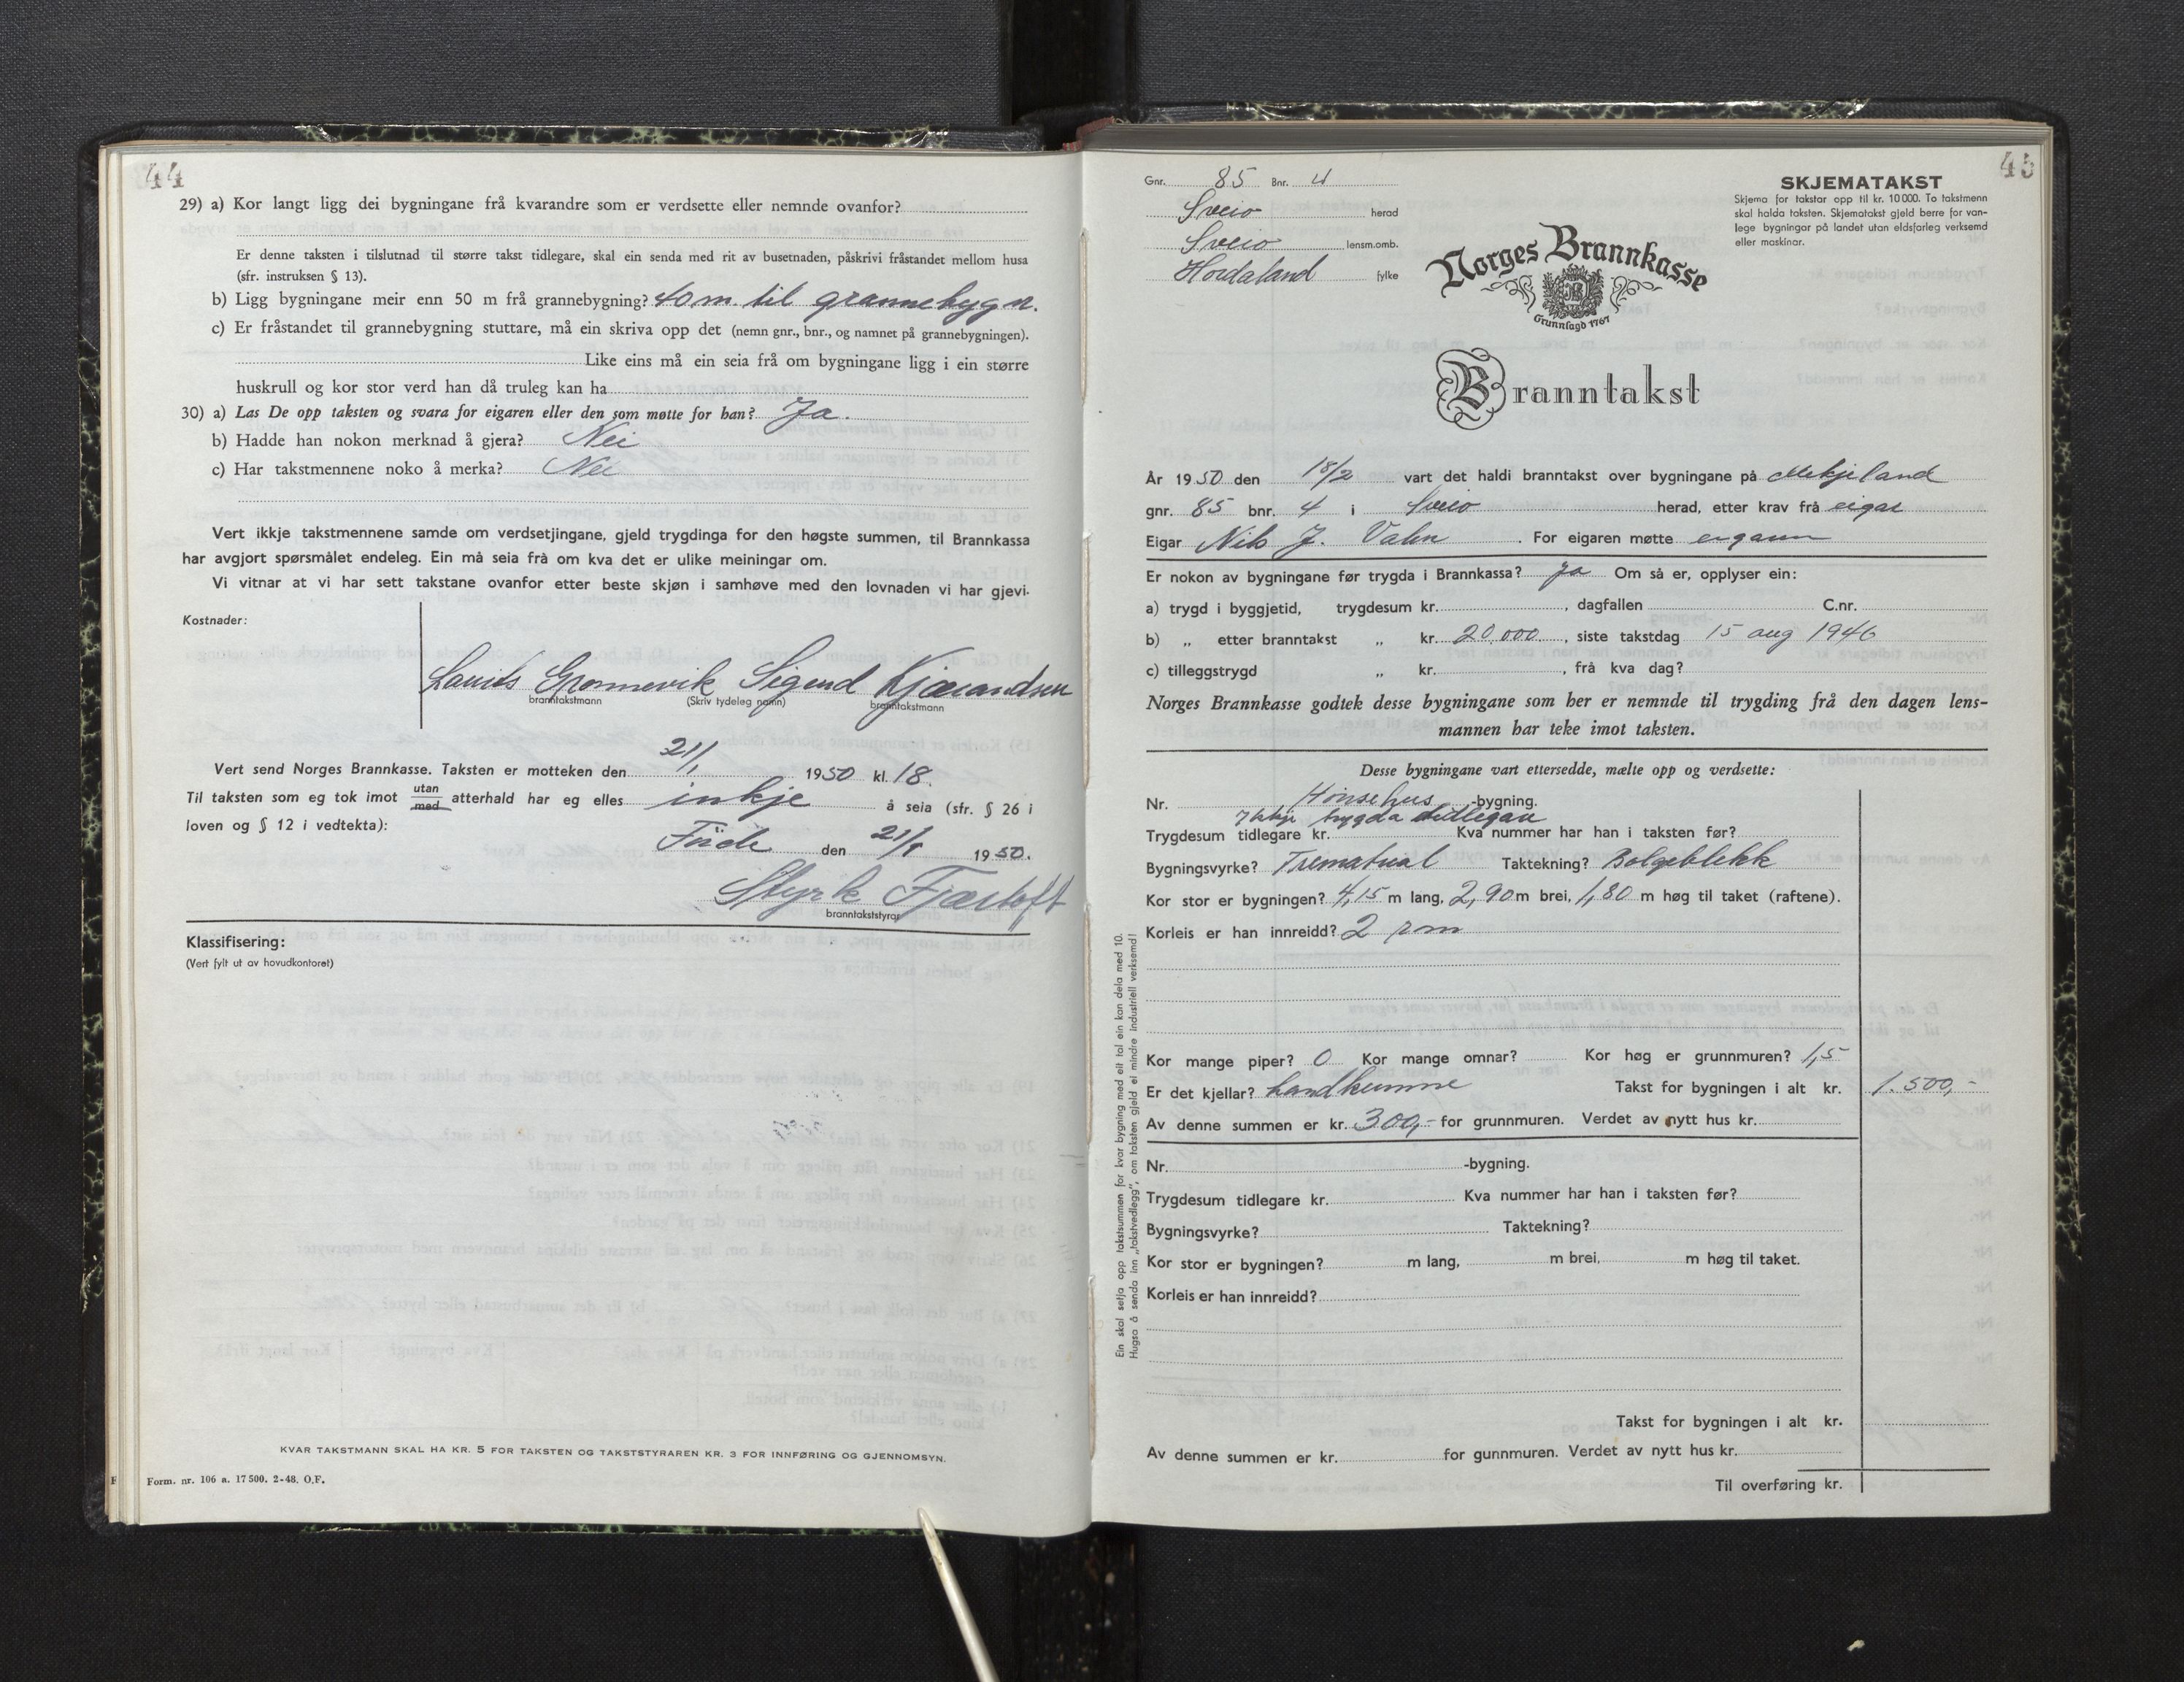 44
29) a) Kor langt ligg dei bygningane frå kvarandre som er verdsette eller nemnde ovanfor?
Er denne taksten i tilslutnad til større takst tidlegare, skal ein senda med rit av busetnaden, påskrivi fråstandet mellom husa
(sfr. instruksen § 13).
b) Ligg bygningane meir enn 50 m frå grannebygning? 40 m. til grannebygn.
c) Er fråstandet til grannebygning stuttare, må ein skriva opp det (nemn gnr., bnr., og namnet på grannebygningen).
Like eins må ein seia frå om bygningane ligg i ein større
huskrull og kor stor verd han då truleg kan ha
30) a) Las De opp taksten og svara for eigaren eller den som møtte for han? Ja.
b) Hadde han nokon merknad å gjera? Nei
c) Har takstmennene noko å merka? Nei
Vert ikkje takstmennene samde om verdsetjingane, gjeld trygdinga for den høgste summen, til Brannkassa
har avgjort spørsmålet endeleg. Ein må seia frà om kva det er ulike meiningar om.
Vi vitnar at vi har sett takstane ovanfor etter beste skjøn i samhøve med den lovnaden vi har gjevi.
Kostnader:
Lauits Grønnevik Sigurd Kjærandsen
branntakstmann (Skriv tydeleg namn) branntakstmann
Vert send Norges Brannkasse. Taksten er motteken den 21/1 1950 kl. 18
Til taksten som eg tok imot utan/med atterhald har eg elles inkje å seia (sfr. § 26 i
loven og § 12 i vedtekta):
Førde den 21/1 1950.
Styrk Fjærtoft
branntakststyrar
Klassifisering:
(Vert fylt ut av hovudkontoret)
KVAR TAKSTMANN SKAL HA KR. 5 FOR TAKSTEN OG TAKSTSTYRAREN KR. 3 FOR INNFØRING OG GJENNOMSYN.
F
Form. nr. 106 a. 17 500. 2-48. O.F.
45
Gnr. 85 Bnr. 4
Sveio herad
Sveio lensm.omb.
Hordaland fylke
SKJEMATAKST
Skjema for takstar opp til kr. 10 000. To takstmenn
skal halda taksten. Skjematakst gjeld berre for van-
lege bygningar på landet utan eldsfarleg verksemd
eller maskinar.
Norges Brannkasse
Grunnlagd 1767
Branntakst
År 1950 den 18/2 vart det haldi branntakst over bygningane på Mekjeland
gnr. 85 bnr. 4 i Sveio herad, etter krav frå eigar
Eigar Nils J. Valen. For eigaren møtte eigaren
Er nokon av bygningane før trygda i Brannkassa? Ja Om så er, opplyser ein:
a) trygd i byggjetid, trygdesum kr. , dagfallen C.nr.
b) „ etter branntakst „ kr. 20.000 , siste takstdag 15 aug 1946
c) tilleggstrygd „ kr. , frå kva dag?
Norges Brannkasse godtek desse bygningane som her er nemnde til trygding frå den dagen lens-
mannen har teke imot taksten.
Desse bygningane vart ettersedde, mælte opp og verdsette:
Nr. Hønsehus -bygning.
Ikkje trygda tidlegare
Trygdesum tidlegare kr. Kva nummer har han i taksten før?
Bygningsvyrke? Trematrial Taktekning? Bølgeblekk
Kor stor er bygningen? 4,15 m lang, 2,90 m brei, 1,80 m høg til taket (raftene).
Korleis er han innreidd? 2 rom
Kor mange piper? 0 Kor mange omnar? Kor høg er grunnmuren? 1,5
Er det kjellar? Landkumme Takst for bygningen i alt kr. 1.500,-
Av denne summen er kr. 300,- for grunnmuren. Verdet av nytt hus kr.
Nr. -bygning.
Trygdesum tidlegare kr. Kva nummer har han i taksten før?
Bygningsvyrke? Taktekning?
Kor stor er bygningen? m lang, m brei, m høg til taket.
Korleis er han innreidd?
Takst for bygningen i alt kr.
Av denne summen er kr. for gunnmuren. Verdet av nytt hus kr.
Til overføring kr.
Ein skal setja opp takstsummen for kvar bygning med eit tal ein kan dela med 10.
Hugsa å senda inn „takstvedlegg”, om taksten gjeld ei mindre industriell verksemd!